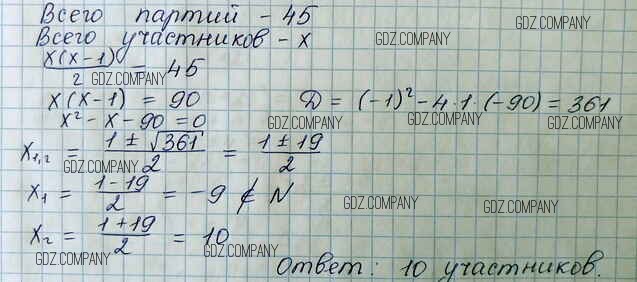 Всего партий - 45
Всего участников - x
x(x-1)/2 = 45
x(x-1) = 90
x² - x - 90 = 0
D = (-1)² - 4·1·(-90) = 361
x₁,₂ = (1 ± √361)/2 = (1 ± 19)/2
x₁ = (1-19)/2 = -9 ∉ N
x₂ = (1+19)/2 = 10
Ответ: 10 участников.
GDZ.COMPANY
GDZ.COMPANY
GDZ.COMPANY
GDZ.COMPANY
GDZ.COMPANY
GDZ.COMPANY
GDZ.COMPANY
GDZ.COMPANY
GDZ.COMPANY
GDZ.COMPANY
GDZ.COMPANY
GDZ.COMPANY